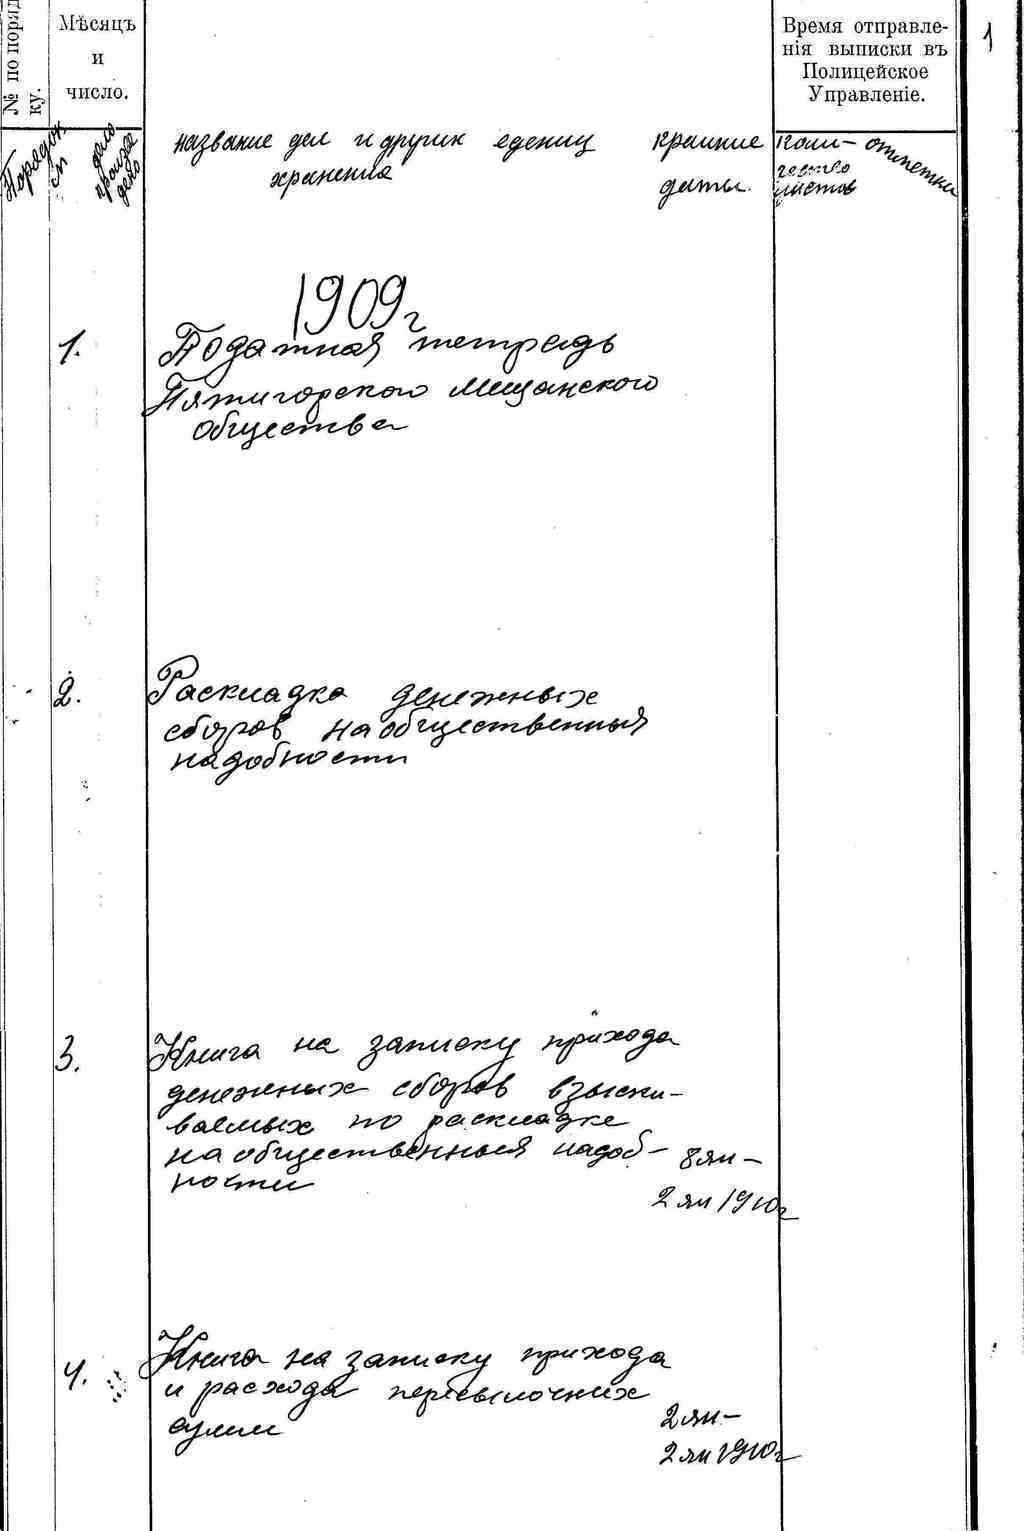 № по поряд
ку.
Мѣсяцъ
и
число.
Время отправле-
нія выписки въ
Полицейское
Управленіе.
1
Порядок
дело
произв
дено
название дел и других едениц
хранения
крайние
даты.
коли-
чество
листов
отметки
1909г
1.
Податная тетрадь
Пятигорского мещанского
общества
2.
Раскладка денежных
сборов на общественныя
надобности
3.
Книга на записку прихода
денежных сборов взыски-
ваемых по раскладке
на общественныя надоб-
ности
8 ян-
2 ян 1910г
4.
Книга на записку прихода
и расхода пересылочных
сумм
2 ян-
2 ян 1910г